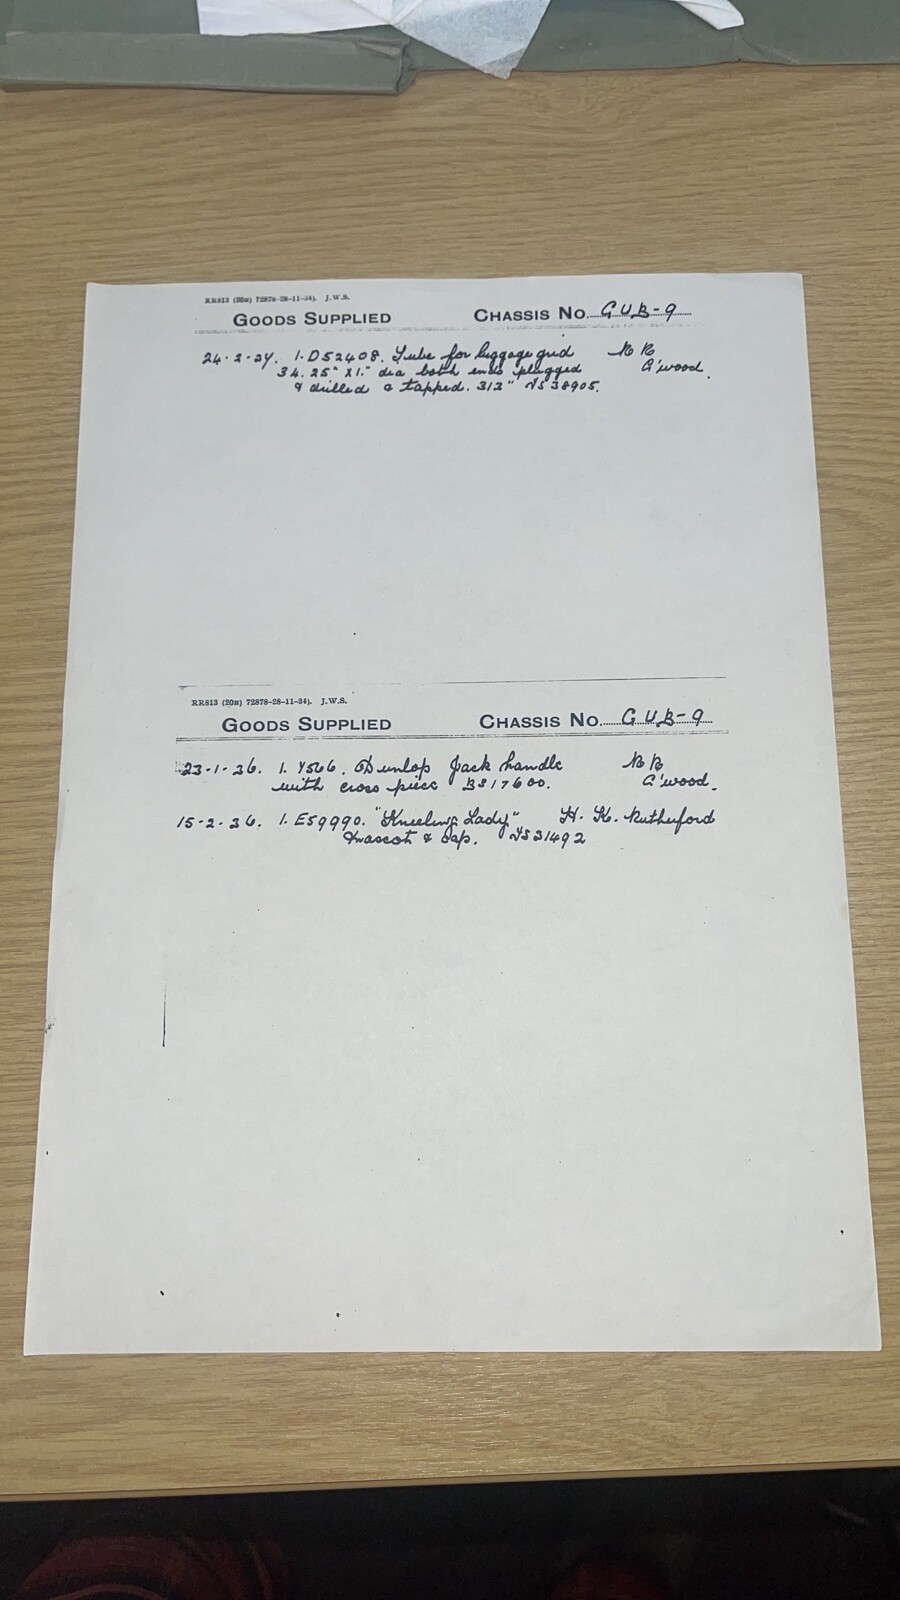 RR813 (20H) 72878-28-11-34). J.W.S.
GOODS SUPPLIED CHASSIS No. GUB-9
24-2-37. 1. D52408. Tube for luggage grid RR
34.25" x 1." dia both ends plugged G'wood.
& drilled & tapped. 313" NS38905.
RR813 (20H) 72878-28-11-34). J.W.S.
GOODS SUPPLIED CHASSIS No. GUB-9
23-1-36. 1. Y566. Dunlop Jack handle RR
with cross piece BS17600. G'wood.
15-2-36. 1. E59990. "Kneeling Lady" H. K. Rutherford
mascot & cap. NS31492